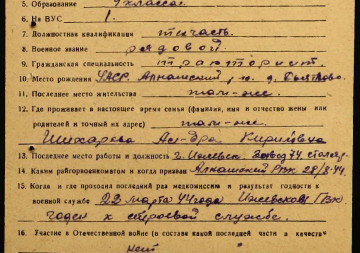 5. Образование 4 класса.
6. На ВУС 1.
7. Должностная квалификация
8. Военное звание рядовой
9. Гражданская специальность тракторист.
10. Место рождения УАССР. Алнашский, р-н. д.
11. Последнее место жительства там-же.
12. Где проживает в настоящее время семья (фамилия, имя и отчество жены или
родителей и точный их адрес) там-же.
Шихарева Ал-дра Кириловна
13. Последнее место работы и должность г. Ижевск. завод 74. столяр.
14. Каким райгорвоенкоматом и когда призван Алнашский РВК 28/3-44.
15. Когда и где проходил последний раз медкомиссию и результат годности к
военной службе 22 марта 44 года Ижевском ГВК
годен к строевой службе.
16. Участие в Отечественной войне (в составе какой последней части в качеств
нет